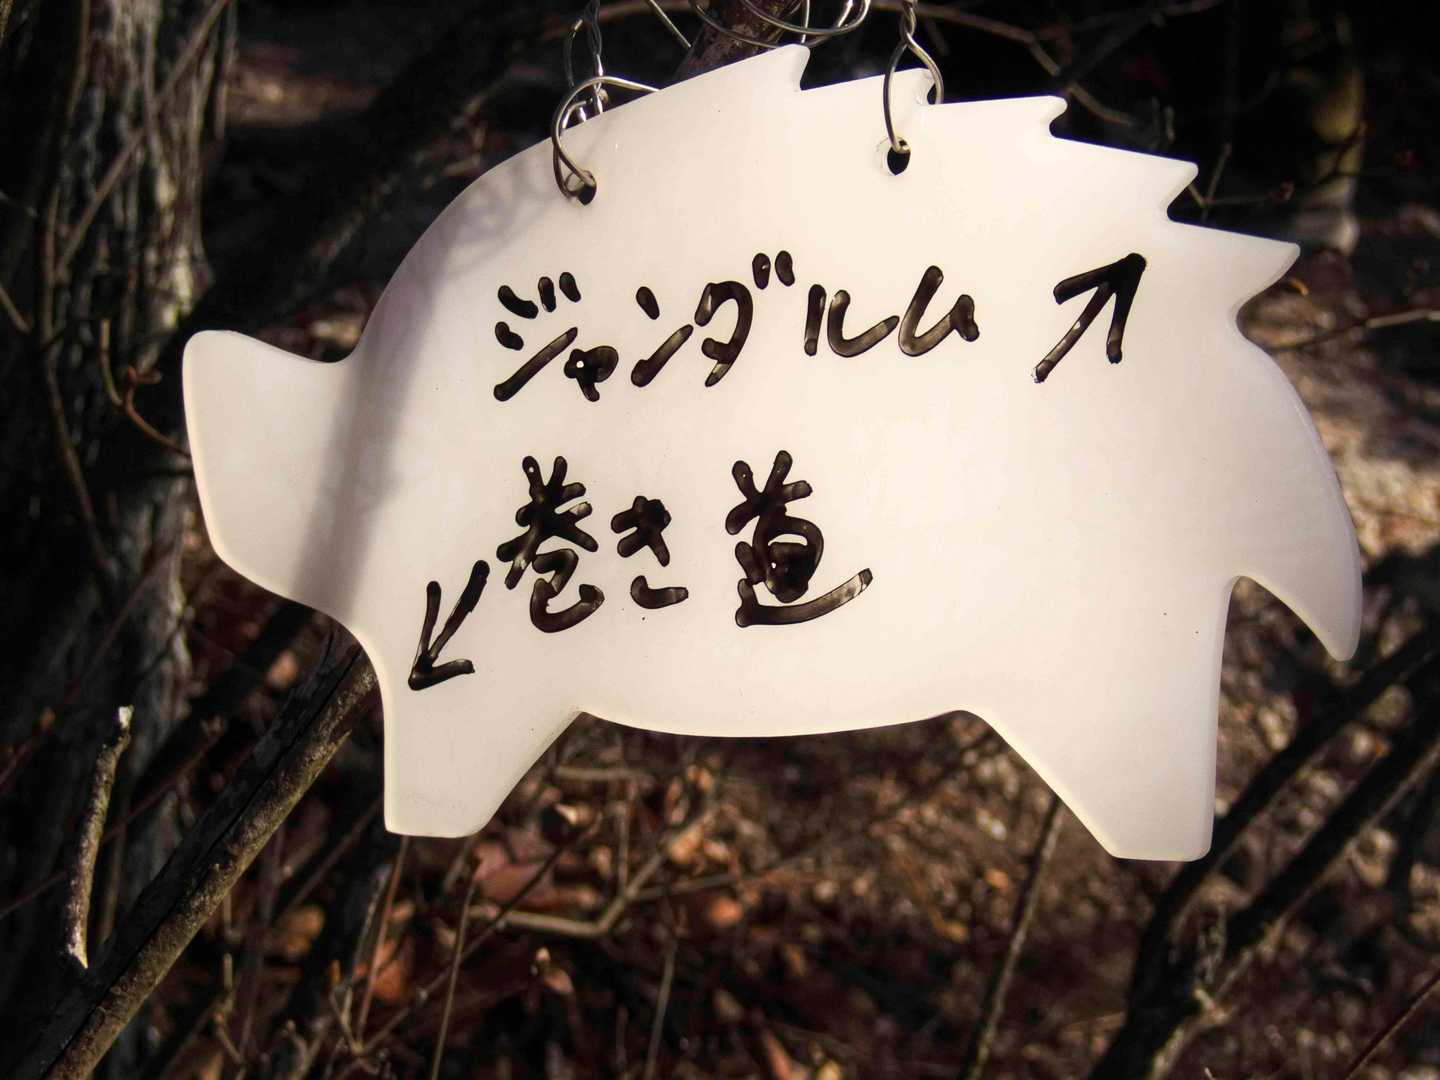 ジャンダルム↗
↙巻き道